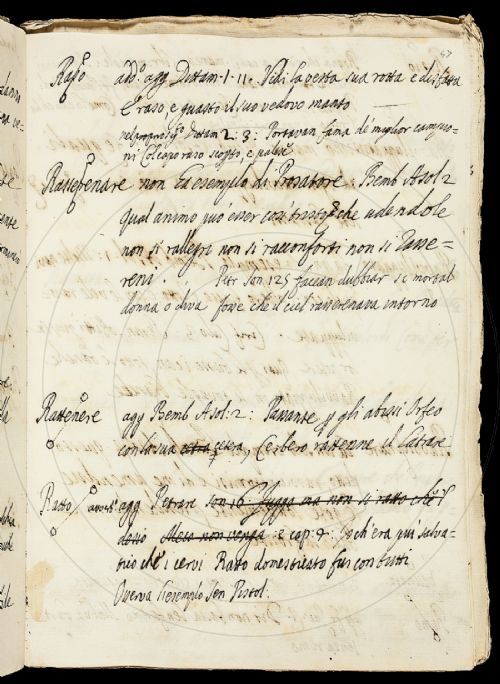 47
Raso add. agg Dittam. 1. 11. Vidi la vesta sua rotta e disfatta
E raso, e guasto il suo vedovo manto
Dittam 2. 3: Portavan fama de miglior campio-
ni Col capo raso scopto, e palese
Rasserenare non ha esemplo di Prosatore: Bemb Asol 2
Qual animo può esser così tristo che udendole
non si rallegri non si racconforti non si rasse-
reni. Petr Son 125 facean dubbiar se mortal
donna o diva fosse che il ciel rasserenava intorno
Rattenere agg Bemb Asol: 2: Passante p gli abissi Orfeo
con la sua cetra cetera, Cerbero rattenne il latrare
Ratto agg Petrar son 16 fugga ma non si ratto che'l
desio Meco non venga 2 cap: 9: poich'era più salva-
tico che i cervi Ratto domesticato fui con tutti
Overva l'esemplo Sen Pistol.